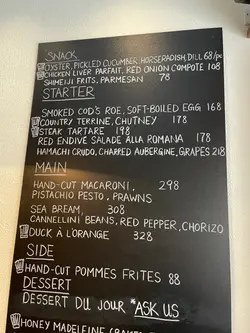 SNACK
OYSTER, PICKLED CUCUMBER, HORSERADISH, DILL 68/PX
CHICKEN LIVER PARFAIT, RED ONION COMPOTE 108
SHIMEJI FRITS, PARMESAN 78
STARTER
SMOKED COD'S ROE, SOFT-BOILED EGG 168
COUNTRY TERRINE, CHUTNEY 178
STEAK TARTARE 198
RED ENDIVE SALADE ALLA ROMANA 178
HAMACHI CRUDO, CHARRED AUBERGINE, GRAPES 218
MAIN
HAND-CUT MACARONI, 298
PISTACHIO PESTO, PRAWNS
SEA BREAM, 308
CANNELLINI BEANS, RED PEPPER, CHORIZO
DUCK À L'ORANGE 328
SIDE
HAND-CUT POMMES FRITES 88
DESSERT
DESSERT DU JOUR *ASK US
HONEY MADELEINE